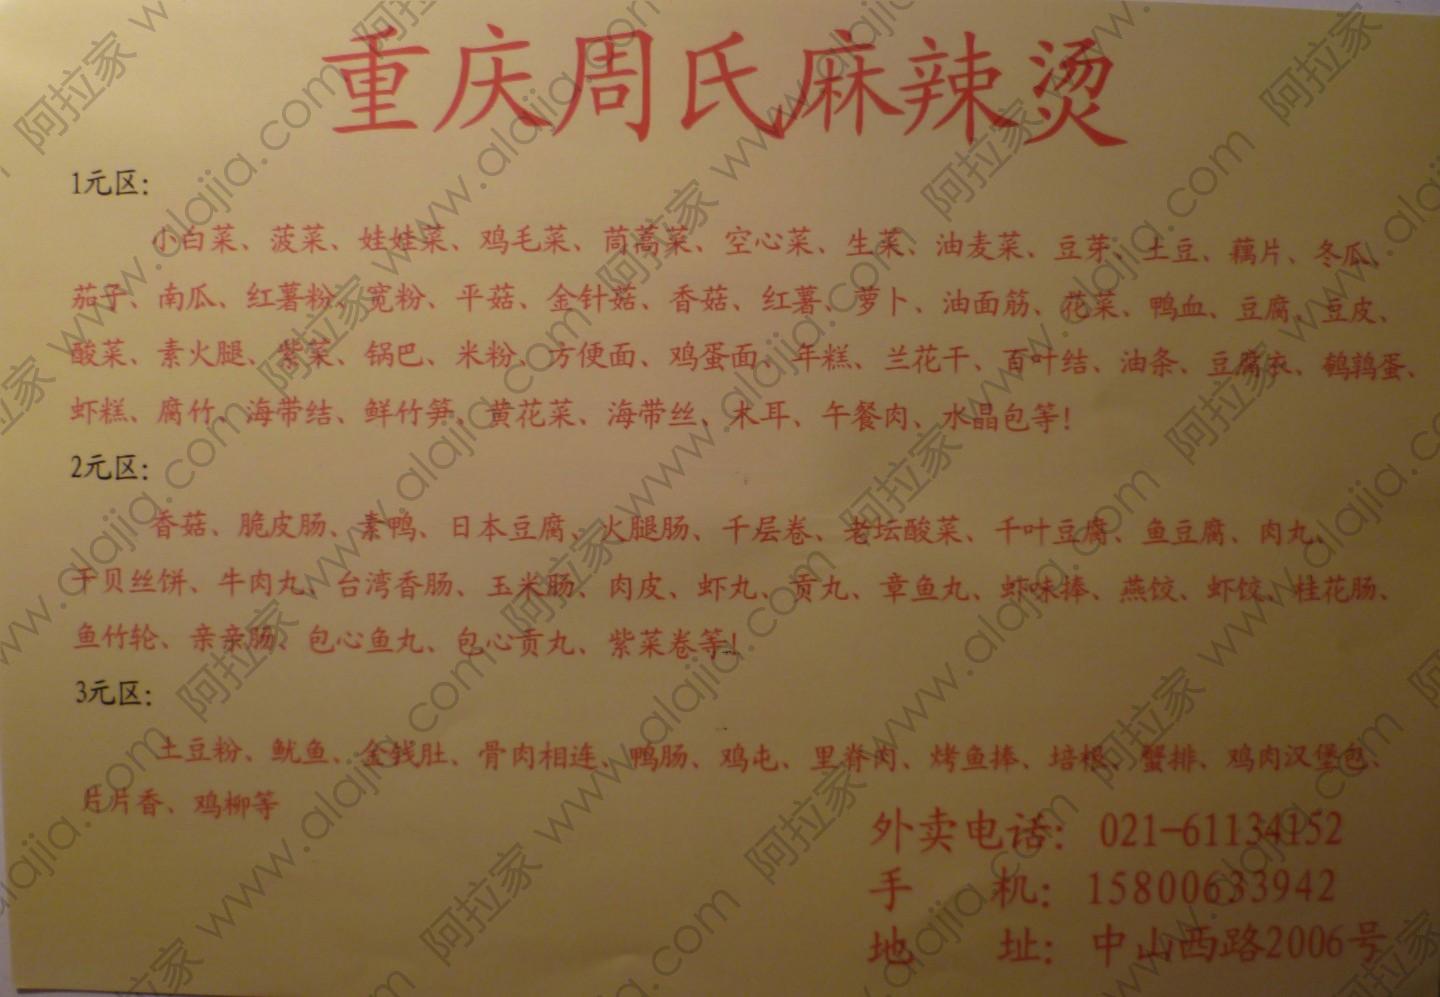 重庆周氏麻辣烫
1元区：
小白菜、菠菜、娃娃菜、鸡毛菜、茼蒿菜、空心菜、生菜、油麦菜、豆芽、土豆、藕片、冬瓜、
茄子、南瓜、红薯粉、宽粉、平菇、金针菇、香菇、红薯、萝卜、油面筋、花菜、鸭血、豆腐、豆皮、
酸菜、素火腿、紫菜、锅巴、米粉、方便面、鸡蛋面、年糕、兰花干、百叶结、油条、豆腐衣、鹌鹑蛋、
虾糕、腐竹、海带结、鲜竹笋、黄花菜、海带丝、木耳、午餐肉、水晶包等！
2元区：
香菇、脆皮肠、素鸭、日本豆腐、火腿肠、千层卷、老坛酸菜、千叶豆腐、鱼豆腐、肉丸、
干贝丝饼、牛肉丸、台湾香肠、玉米肠、肉皮、虾丸、贡丸、章鱼丸、虾味捧、燕饺、虾饺、桂花肠、
鱼竹轮、亲亲肠、包心鱼丸、包心贡丸、紫菜卷等！
3元区：
土豆粉、鱿鱼、金钱肚、骨肉相连、鸭肠、鸡屯、里脊肉、烤鱼捧、培根、蟹排、鸡肉汉堡包、
片片香、鸡柳等
外卖电话：021-61134152
手 机：15800633942
地 址：中山西路2006号
阿拉家 www.alajia.com